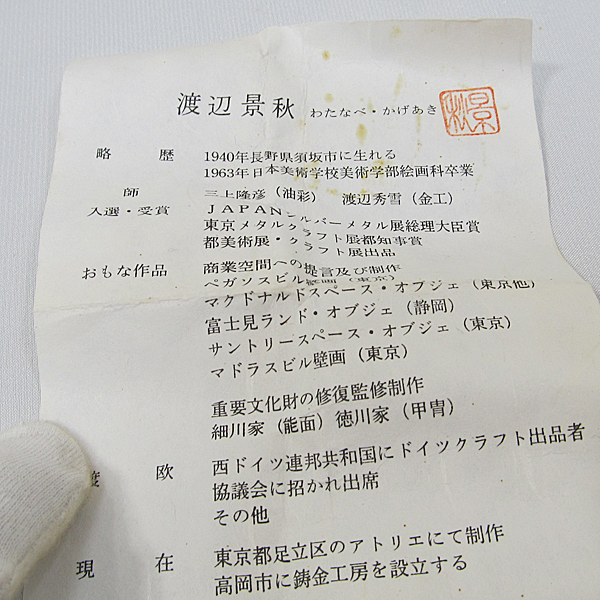 渡辺景秋 わたなべ・かげあき
景秋
略歴 1940年長野県須坂市に生れる
1963年日本美術学校美術学部絵画科卒業
師 三上隆彦（油彩） 渡辺秀雪（金工）
入選・受賞 JAPANシルバーメタル展総理大臣賞
東京メタルクラフト展都知事賞
都美術展・クラフト展出品
おもな作品 商業空間への提言及び制作
ペガソスビル壁画（東京）
マクドナルドスペース・オブジェ（東京他）
富士見ランド・オブジェ（静岡）
サントリースペース・オブジェ（東京）
マドラスビル壁画（東京）
重要文化財の修復監修制作
細川家（能面）徳川家（甲冑）
渡欧 西ドイツ連邦共和国にドイツクラフト出品者
協議会に招かれ出席
その他
現在 東京都足立区のアトリエにて制作
高岡市に鋳金工房を設立する